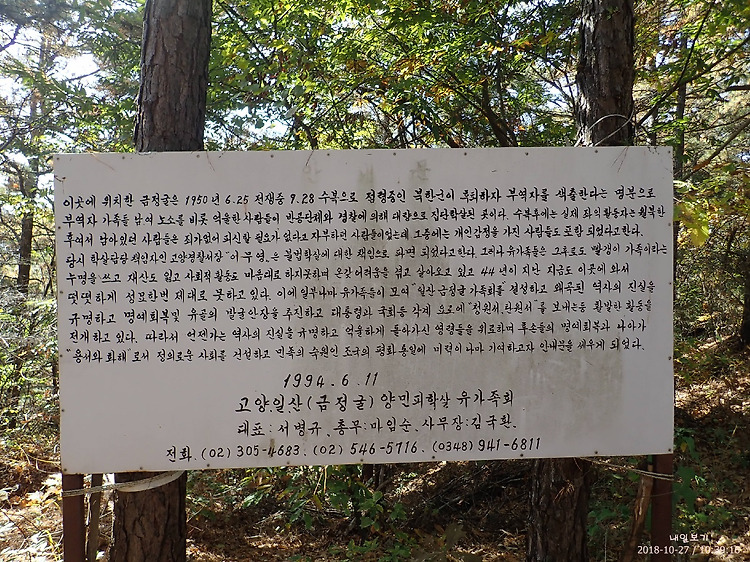 안 내 문
이곳에 위치한 금정굴은 1950년 6.25 전쟁중 9.28 수복으로 점령중인 북한군이 후퇴하자 부역자를 색출한다는 명분으로
부역자 가족들 남여 노소를 비롯 억울한 사람들이 반공단체와 경찰에 의해 대량으로 집단학살된 곳이다. 수복후에는 실제 좌익활동자는 월북한
후여서 남아있던 사람들은 죄가없어 피신할 필요가 없다고 자부하던 사람들이었는데 그중에는 개인감정을 가진 사람들도 포함 되었다고한다.
당시 학살담당 책임자인 고양경찰서장 "이무영"은 불법학살에 대한 책임으로 파면 되었다고한다. 그러나 유가족들은 그후로도 "빨갱이 가족"이라는
누명을 쓰고 재산도 잃고 사회적 활동도 마음대로 하지못하며 온갖 어려움을 겪고 살아오고 있고 44년이 지난 지금도 이곳에 와서
떳떳하게 성묘한번 제대로 못하고 있다. 이에 일부나마 유가족들이 모여 "일산 금정굴 가족회"를 결성하고 왜곡된 역사의 진실을
규명하고 명예회복및 유골의 발굴 안장을 추진하고 대통령과 국회등 각계 요로에 "청원서, 탄원서"를 보내는등 활발한 활동을
전개하고 있다. 따라서 언젠가는 역사의 진실을 규명하고 억울하게 돌아가신 영령들을 위로하며 후손들의 명예회복과 나아가
"용서와 화해"로서 정의로운 사회를 건설하고 민족의 숙원인 조국의 평화 통일에 미력이나마 기여하고자 안내문을 세우게 되었다.
1994. 6. 11
고양일산(금정굴) 양민피학살 유가족회
대표: 서병규, 총무: 마임순, 사무장: 김국환.
전화. (02) 305-4683. (02) 546-5716. (0348) 941-6811
내일보기
2018-10-27 / 10:39:16